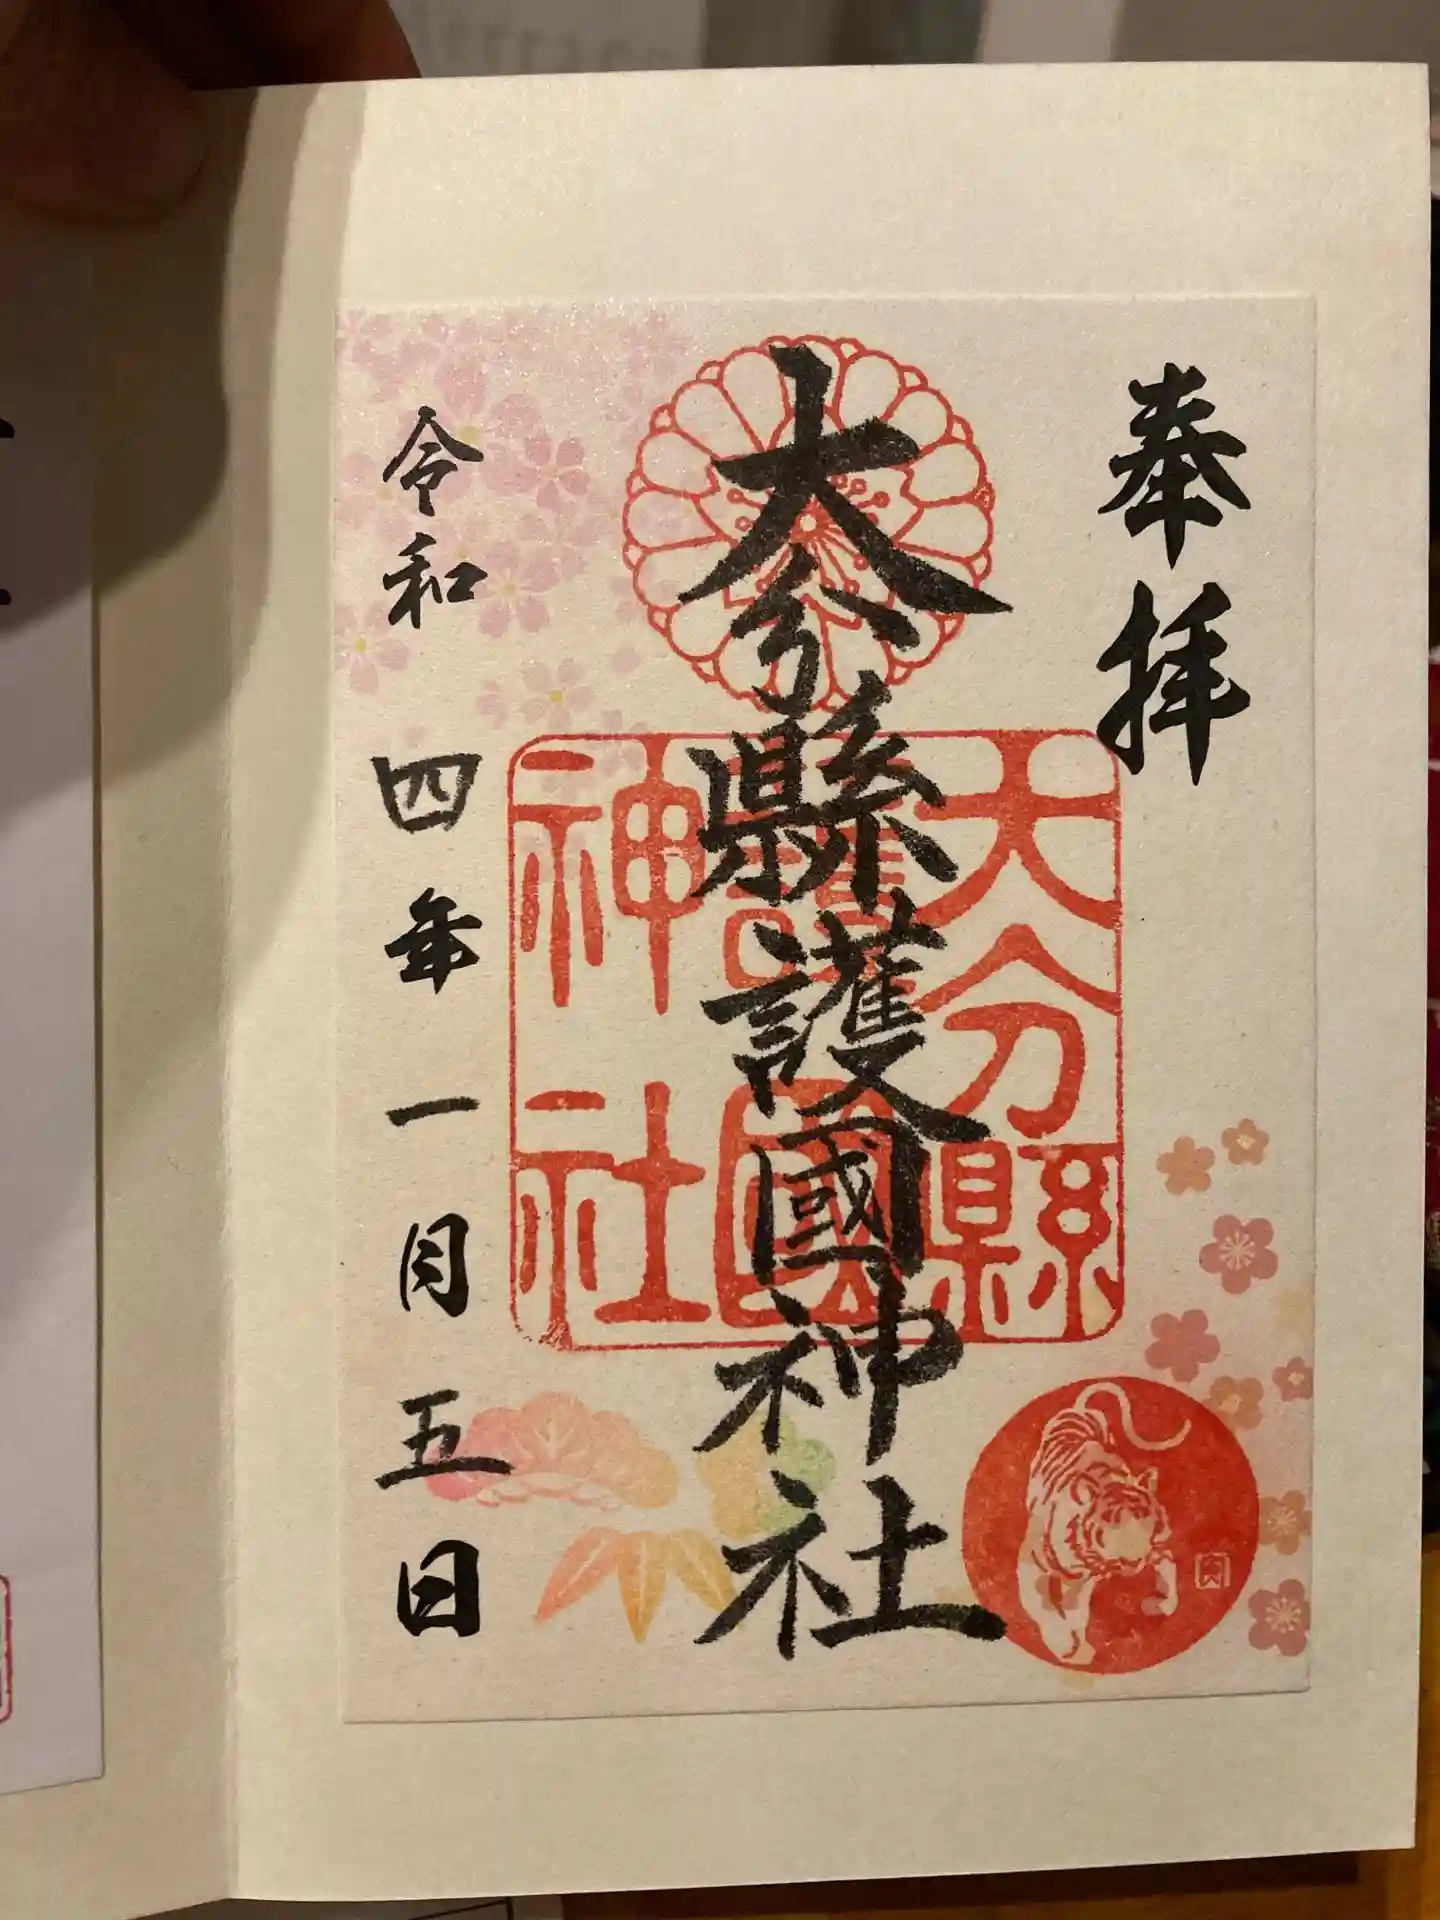 奉拝
大分縣護國神社
大分縣
護國
神社
寅
令和四年一月五日